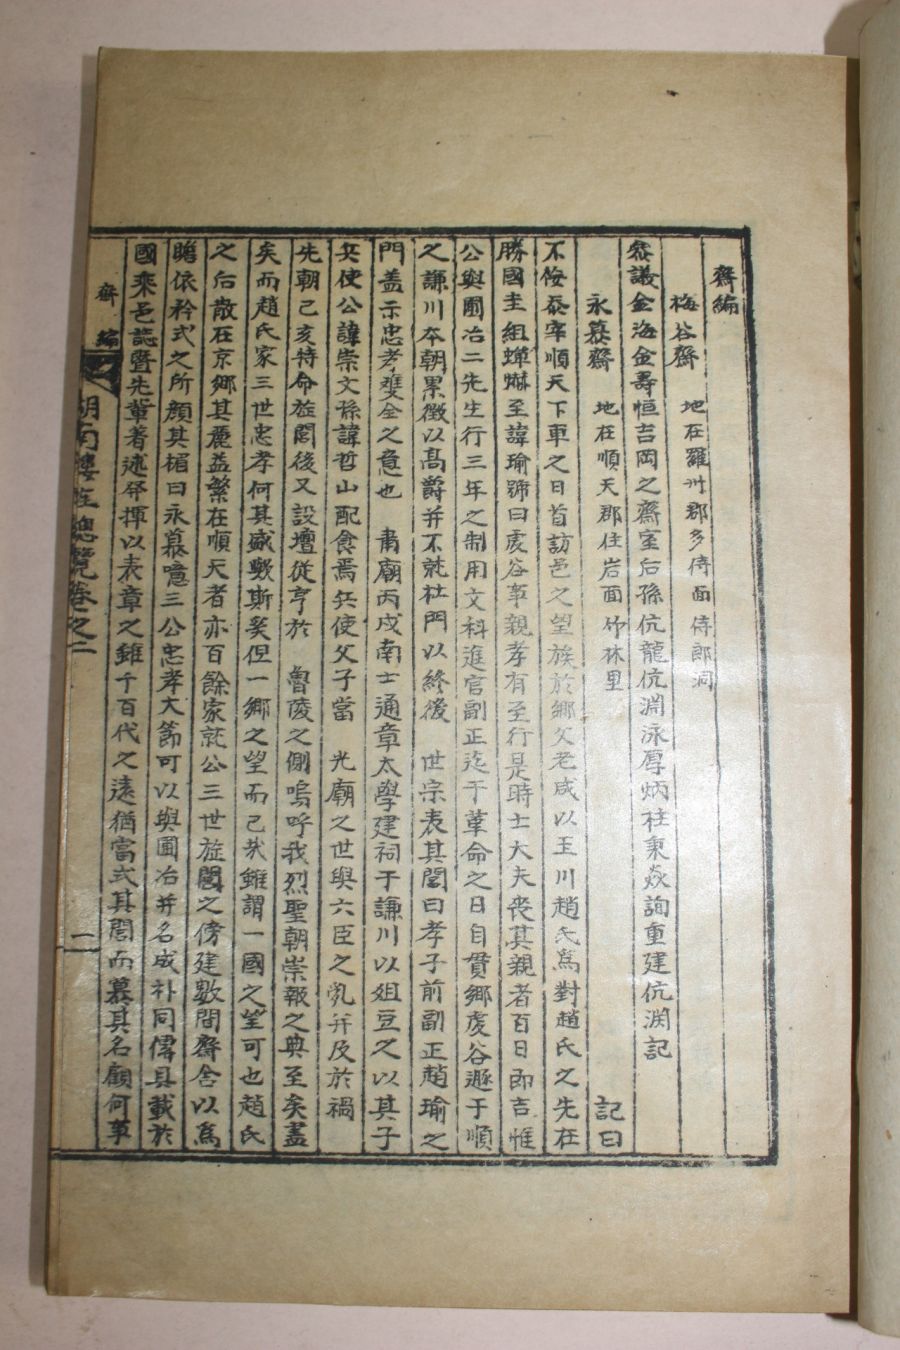 齋編
梅谷齋 地在羅州郡多侍面侍郎洞
叅議金海金壽恒吉岡之齋室后孫伉龍伉淵泳厚炳柱秉焱詢重建伉淵記
永慕齋 地在順天郡住岩面竹林里 記曰
不侫恭宰順天下車之日首訪邑之望族於鄉父老咸以玉川趙氏爲對趙氏之先在
勝國圭組蟬嚇至諱瑜號曰虔谷萃親孝有至行是時士大夫喪其親者百日卽吉惟
公與圃冶二先生行三年之制用文科進官副正迄于革命之日自貫鄉虔谷遯于順
之謙川本朝累徵以高爵并不就杜門以終後 世宗表其閭曰孝子前副正趙瑜之
門盖示忠孝雙全之意也 肅廟丙戍南士通章太學建祠于謙川以俎豆之以其子
兵使公諱崇文孫諱哲山配食焉兵使父子當 光廟之世與六臣之 并及於禍
先朝己亥特命旌閭後又設壇從享於 魯陵之側嗚呼我烈聖朝崇報之典至矣盡
矣而趙氏家三世忠孝何其盛歟斯奚但一鄉之望而已哉雖謂一國之望可也趙氏
之后散在京鄉其麗益繁在順天者亦百餘家就公三世旌閭之傍建數間齋舍以爲
瞻依矜式之所顏其楣曰永慕噫三公忠孝大節可以與圃冶并名成朴同傳具載於
國乘邑誌曁先輩著述發揮以表章之雖千百代之遠猶當式其閭而慕其名顧何莘
齋編 湖南樓㫌總覽卷之二 一